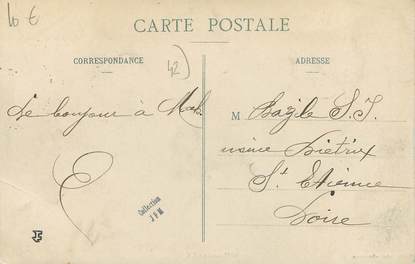 10 €
CARTE POSTALE
CORRESPONDANCE
42
ADRESSE
le bonjour à
M Bazile S. J.
usine
St Etienne
Loire
Collection
JFM